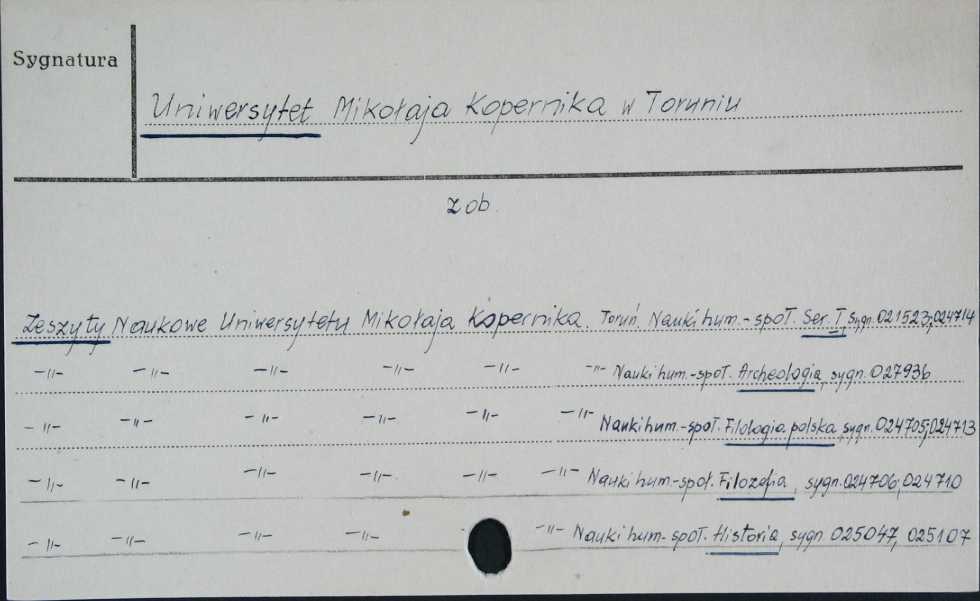 Sygnatura
Uniwersytet Mikołaja Kopernika w Toruniu
zob.
Zeszyty Naukowe Uniwersytetu Mikołaja Kopernika. Toruń. Nauki hum.-społ. Ser. I, sygn. 021523; 024714
-"- -"- -"- -"- -"- -"- Nauki hum.-społ. Archeologia, sygn. 027936
-"- -"- -"- -"- -"- -"- Nauki hum.-społ. Filologia polska, sygn. 024705; 024713
-"- -"- -"- -"- -"- -"- Nauki hum-społ. Filozofia, sygn. 024706; 024710
-"- -"- -"- -"- -"- Nauki hum-społ. Historia, sygn 025047, 025107